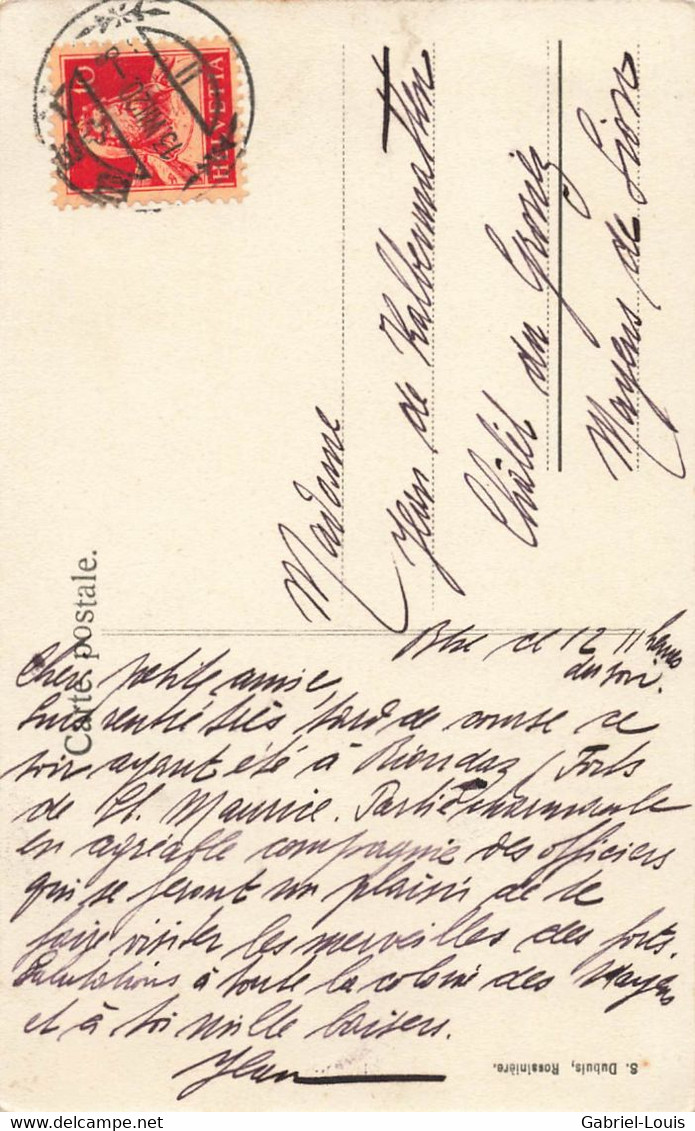 Carte postale.
10
HELVETIA
13.VIII.20
Madame
Jean de Kalbermatten
Châlet du
Mayens de Sion
Bex ce 12 11 heures
du soir.
Chère petite amie,
Suis rentré très tard de course ce
soir ayant été à Riondaz (Forts
de St. Maurice. Partie charmante
en agréable compagnie des officiers
qui se feront un plaisir de te
faire visiter les merveilles des forts.
Salutations à toute la colonie des Mayens
et à toi mille baisers.
Jean
S. Dubuis, Rossinière.
delcampe.net
Gabriel-Louis